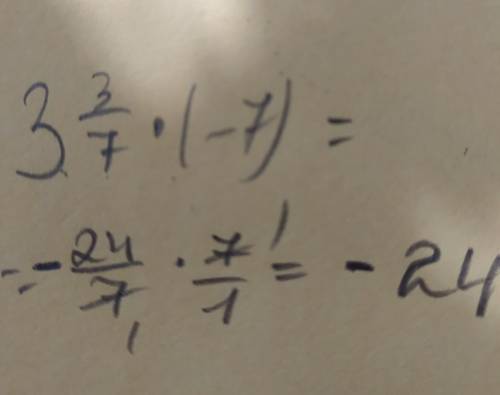 3 3/7 · (-7) =
= - 24/7 · 7/1 = - 24